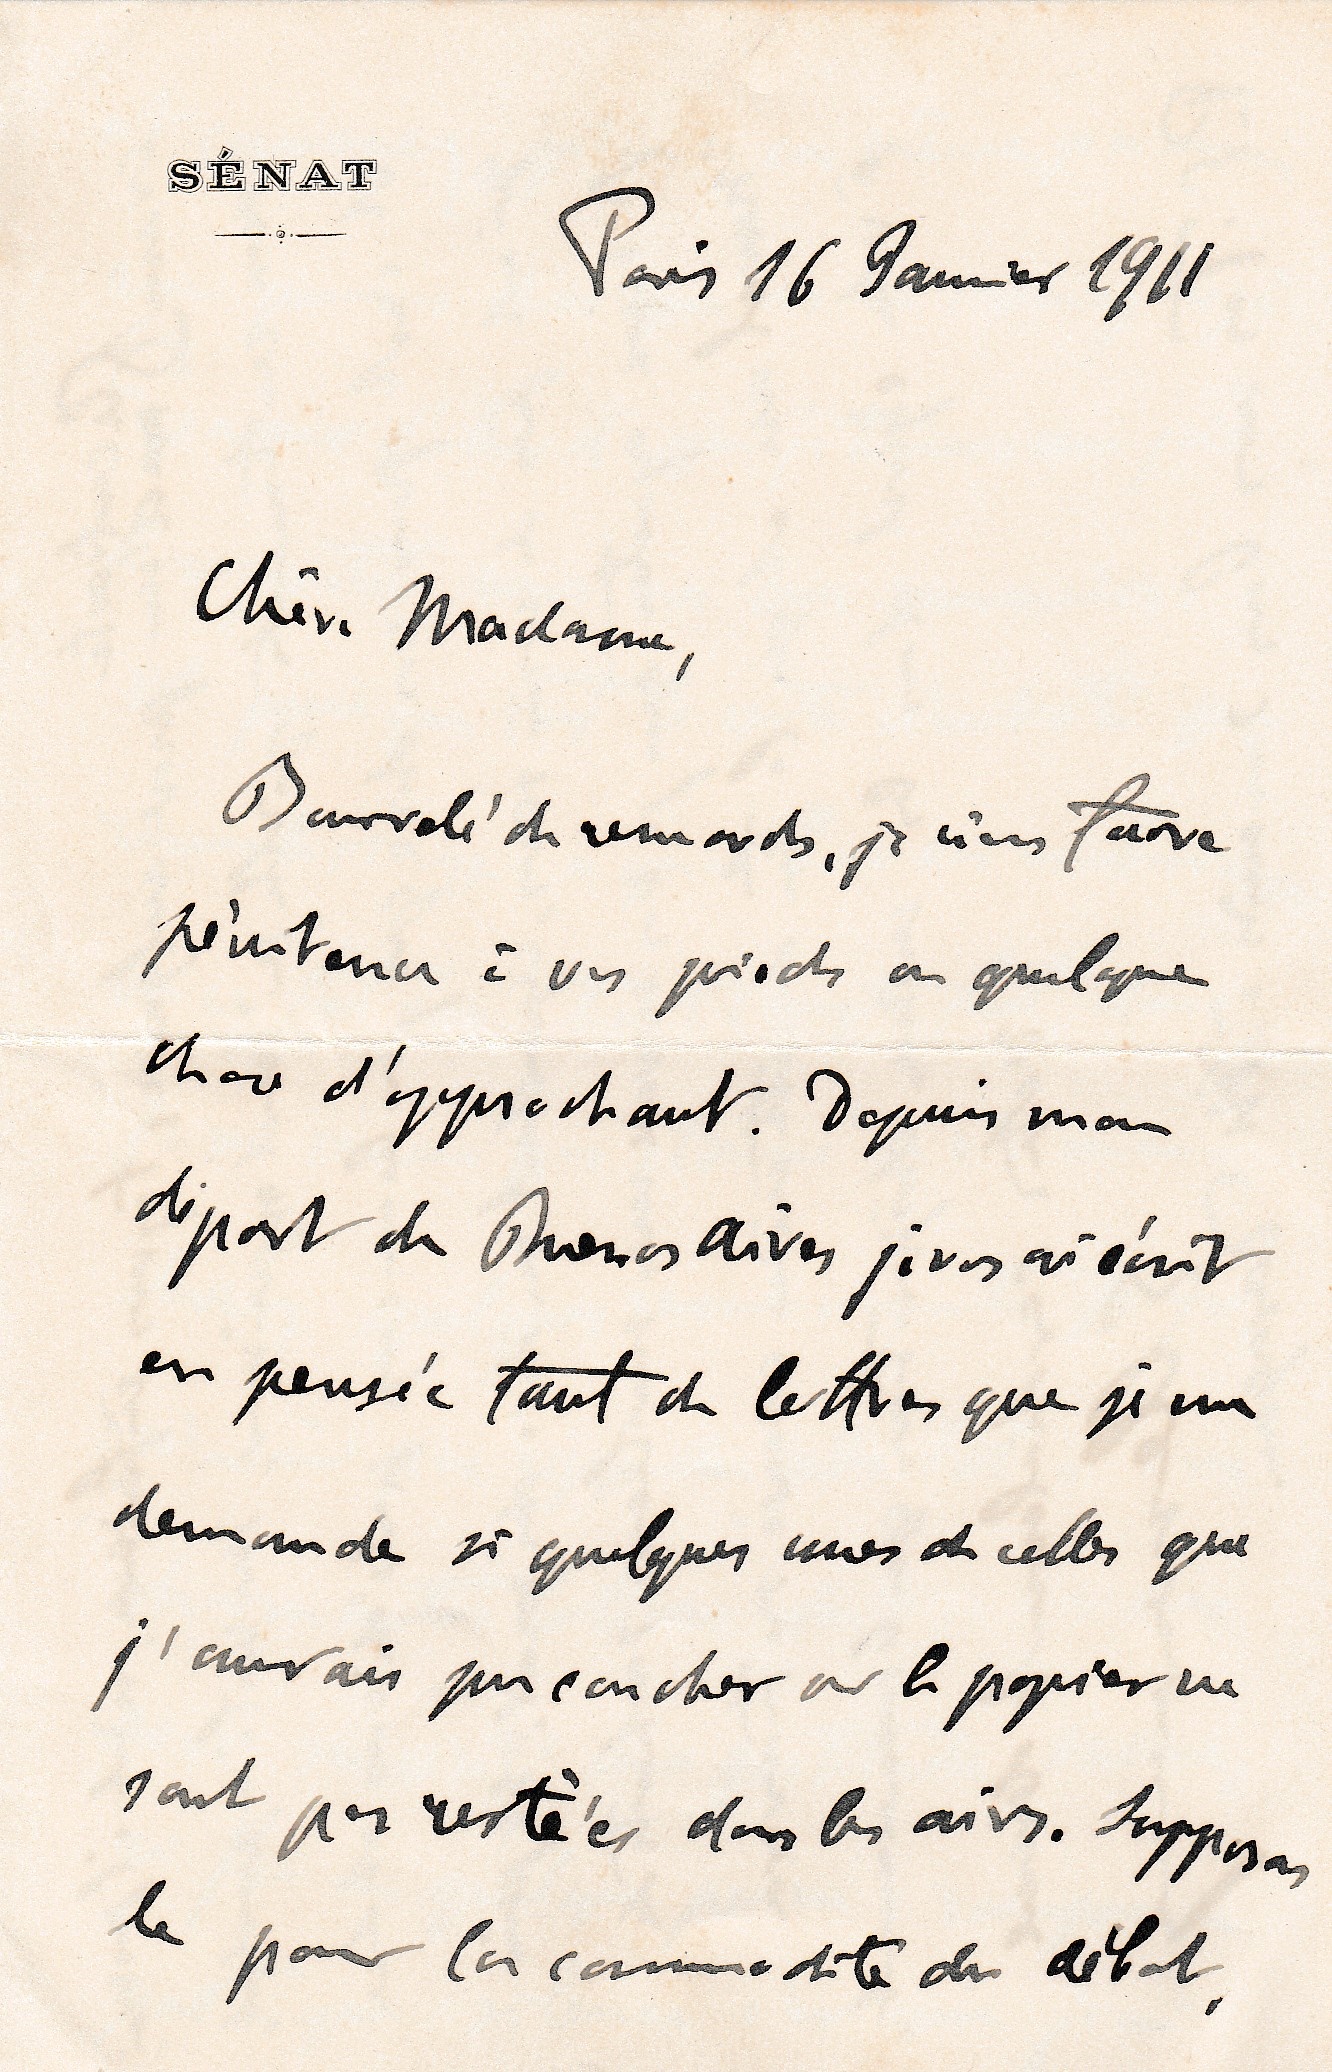 SÉNAT
Paris 16 Janvier 1911
Chère Madame,
Bourrelé de remords, je viens faire
pénitence à vos pieds ou quelque
chose d'approchant. Depuis mon
départ de Buenos Aires je vous ai écrit
en pensée tant de lettres que je me
demande si quelques unes de celles que
j'aurais pu coucher sur le papier ne
sont pas restées dans les airs. Supposons
le pour la commodité du débat,